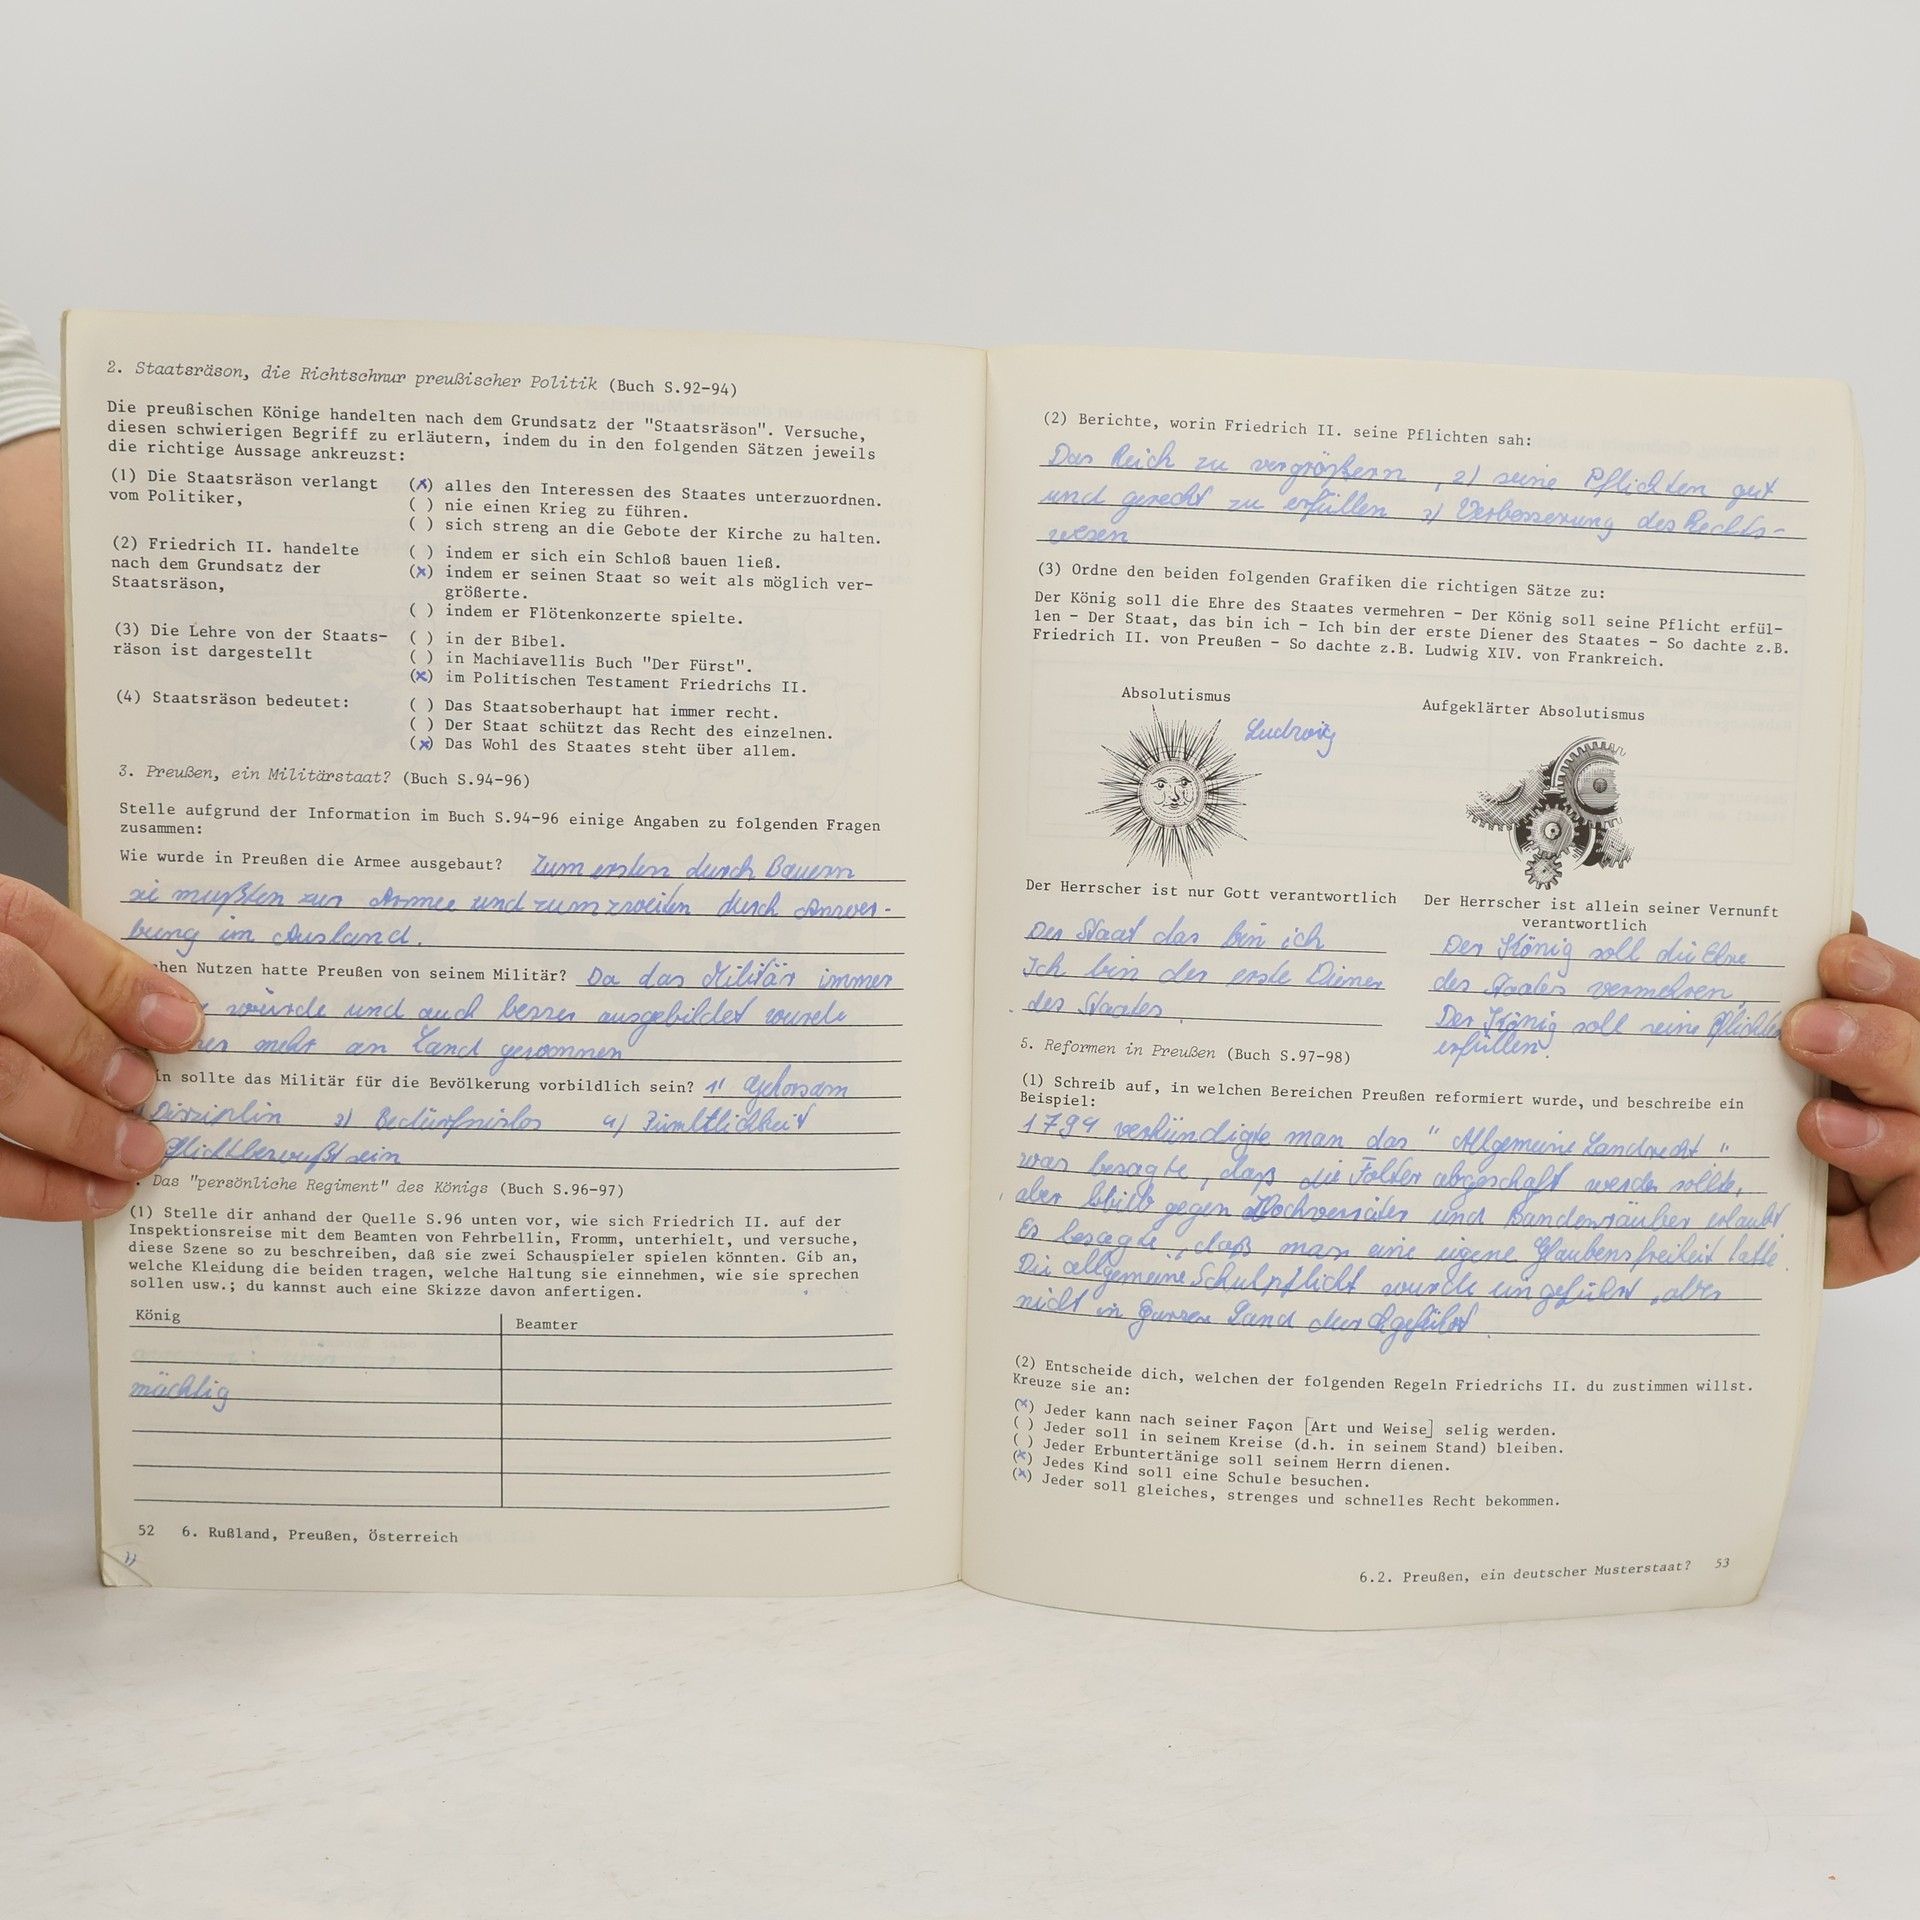 2. Staatsräson, die Richtschnur preußischer Politik (Buch S.92-94)
Die preußischen Könige handelten nach dem Grundsatz der "Staatsräson". Versuche,
diesen schwierigen Begriff zu erläutern, indem du in den folgenden Sätzen jeweils
die richtige Aussage ankreuzst:
(1) Die Staatsräson verlangt
vom Politiker,
(x) alles den Interessen des Staates unterzuordnen.
( ) nie einen Krieg zu führen.
( ) sich streng an die Gebote der Kirche zu halten.
(2) Friedrich II. handelte
nach dem Grundsatz der
Staatsräson,
( ) indem er sich ein Schloß bauen ließ.
(x) indem er seinen Staat so weit als möglich ver-
größerte.
( ) indem er Flötenkonzerte spielte.
(3) Die Lehre von der Staats-
räson ist dargestellt
( ) in der Bibel.
( ) in Machiavellis Buch "Der Fürst".
(x) im Politischen Testament Friedrichs II.
(4) Staatsräson bedeutet:
( ) Das Staatsoberhaupt hat immer recht.
( ) Der Staat schützt das Recht des einzelnen.
(x) Das Wohl des Staates steht über allem.
3. Preußen, ein Militärstaat? (Buch S.94-96)
Stelle aufgrund der Information im Buch S.94-96 einige Angaben zu folgenden Fragen
zusammen:
Wie wurde in Preußen die Armee ausgebaut? Zum ersten durch Bauern
sie mußten zur Armee und zum zweiten durch Anwer-
bung im Ausland.
chen Nutzen hatte Preußen von seinem Militär? Da das Militär immer
wurde und auch besser ausgebildet wurde
mehr an Land gewonnen
in sollte das Militär für die Bevölkerung vorbildlich sein? 1) Gehorsam
Disziplin 3) Bedürfnislos 4) Pünktlichkeit
Pflichtbewußt sein
. Das "persönliche Regiment" des Königs (Buch S.96-97)
(1) Stelle dir anhand der Quelle S.96 unten vor, wie sich Friedrich II. auf der
Inspektionsreise mit dem Beamten von Fehrbellin, Fromm, unterhielt, und versuche,
diese Szene so zu beschreiben, daß sie zwei Schauspieler spielen könnten. Gib an,
welche Kleidung die beiden tragen, welche Haltung sie einnehmen, wie sie sprechen
sollen usw.; du kannst auch eine Skizze davon anfertigen.
König
Beamter
mächtig
52 6. Rußland, Preußen, Österreich
(2) Berichte, worin Friedrich II. seine Pflichten sah:
Das Reich zu vergrößern, 2) seine Pflichten gut
und gerecht zu erfüllen 3) Verbesserung des Rechts-
wesen
(3) Ordne den beiden folgenden Grafiken die richtigen Sätze zu:
Der König soll die Ehre des Staates vermehren - Der König soll seine Pflicht erfül-
len - Der Staat, das bin ich - Ich bin der erste Diener des Staates - So dachte z.B.
Friedrich II. von Preußen - So dachte z.B. Ludwig XIV. von Frankreich.
Absolutismus
Ludwig
Aufgeklärter Absolutismus
Der Herrscher ist nur Gott verantwortlich
Der Herrscher ist allein seiner Vernunft
verantwortlich
Der Staat das bin ich
Ich bin der erste Diener
des Staates.
Der König soll die Ehre
des Staates vermehren.
Der König soll seine Pflichten
erfüllen.
5. Reformen in Preußen (Buch S.97-98)
(1) Schreib auf, in welchen Bereichen Preußen reformiert wurde, und beschreibe ein
Beispiel:
1794 verkündigte man das "Allgemeine Landrecht"
was besagte, daß die Folter abgeschaft werden sollte,
aber blieb gegen Hochverräter und Bandenräuber erlaubt
Es besagte, daß man eine eigene Glaubensfreiheit hatte.
Die allgemeine Schulpflicht wurde eingeführt, aber
nicht in ganzen Land durchgeführt.
(2) Entscheide dich, welchen der folgenden Regeln Friedrichs II. du zustimmen willst.
Kreuze sie an:
(x) Jeder kann nach seiner Façon [Art und Weise] selig werden.
( ) Jeder soll in seinem Kreise (d.h. in seinem Stand) bleiben.
( ) Jeder Erbuntertänige soll seinem Herrn dienen.
(x) Jedes Kind soll eine Schule besuchen.
(x) Jeder soll gleiches, strenges und schnelles Recht bekommen.
6.2. Preußen, ein deutscher Musterstaat? 53